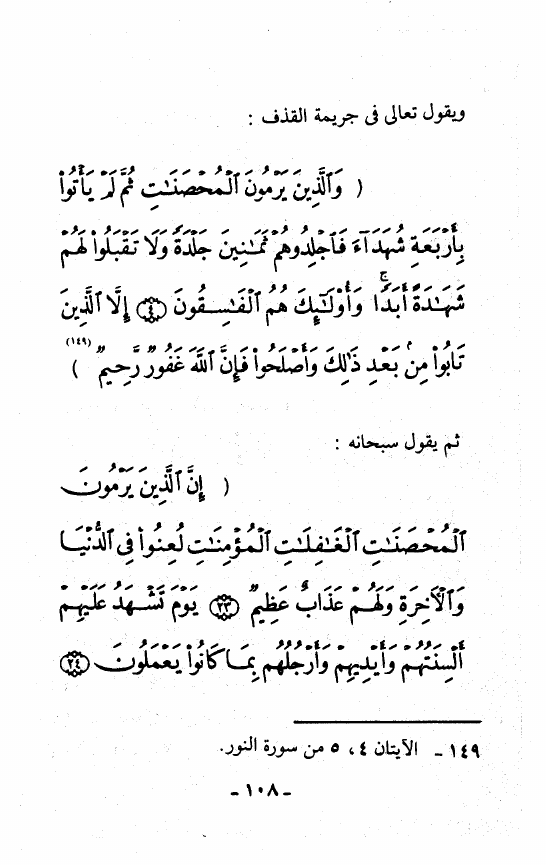 ويقول تعالى فى جريمة القذف :
( وَٱلَّذِينَ يَرْمُونَ ٱلْمُحْصَنَـٰتِ ثُمَّ لَمْ يَأْتُوا۟
بِأَرْبَعَةِ شُهَدَآءَ فَٱجْلِدُوهُمْ ثَمَـٰنِينَ جَلْدَةً وَلَا تَقْبَلُوا۟ لَهُمْ
شَهَـٰدَةً أَبَدًا ۚ وَأُو۟لَـٰٓئِكَ هُمُ ٱلْفَـٰسِقُونَ ﴿٤﴾ إِلَّا ٱلَّذِينَ
تَابُوا۟ مِنۢ بَعْدِ ذَٰلِكَ وَأَصْلَحُوا۟ فَإِنَّ ٱللَّهَ غَفُورٌ رَّحِيمٌ (١٤٩) )
ثم يقول سبحانه :
( إِنَّ ٱلَّذِينَ يَرْمُونَ
ٱلْمُحْصَنَـٰتِ ٱلْغَـٰفِلَـٰتِ ٱلْمُؤْمِنَـٰتِ لُعِنُوا۟ فِى ٱلدُّنْيَا
وَٱلْـَٔاخِرَةِ وَلَهُمْ عَذَابٌ عَظِيمٌ ﴿٢٣﴾ يَوْمَ تَشْهَدُ عَلَيْهِمْ
أَلْسِنَتُهُمْ وَأَيْدِيهِمْ وَأَرْجُلُهُم بِمَا كَانُوا۟ يَعْمَلُونَ ﴿٢٤﴾
١٤٩ - الآيتان ٤ ، ٥ من سورة النور.
- ١٠٨ -